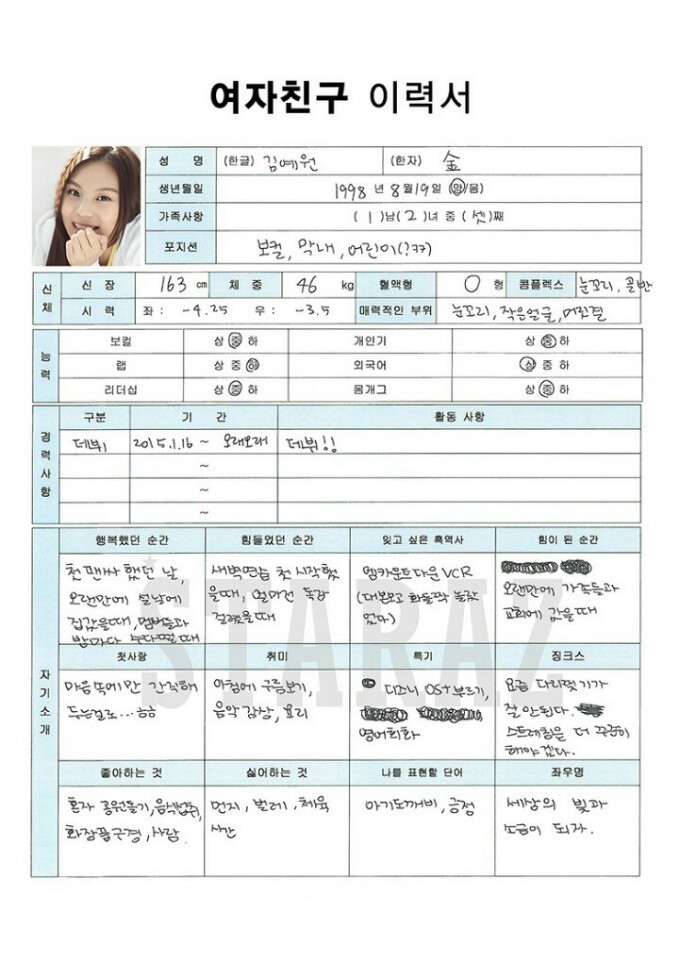 여자친구 이력서
성 명 (한글) 김예원 (한자) 金
생년월일 1998 년 8 월 19 일 (양/음)
가족사항 ( 1 )남( 2 )녀 중 ( 셋 )째
포지션 보컬, 막내, 어린이(?ㅋㅋ)
신체
신 장 163 cm 체 중 46 kg 혈액형 O 형 콤플렉스 눈꼬리, 골반
시 력 좌 : -4.25 우 : -3.5 매력적인 부위 눈꼬리, 작은얼굴, 머릿결
능력
보컬 상 중 하 개인기 상 중 하
랩 상 중 하 외국어 상 중 하
리더십 상 중 하 몸개그 상 중 하
경력사항
구분 기 간 활동 사항
데뷔 2015.1.16 ~ 오래오래 데뷔!!
~
~
~
자기소개
행복했던 순간 힘들었던 순간 잊고 싶은 흑역사 힘이 된 순간
첫 팬싸 했던 날,
오랜만에 설날에
집갔을때, 멤버들과
밤마다 수다떨때
새벽연습 첫 시작했
을때, 얼마전 독감
걸렸을때
엠카운트다운 VCR
(대본보고 화들짝 놀랐
었다)
오랜만에 가족들과
교회에 갔을때
첫사랑 취미 특기 징크스
마음 속에만 간직해
두는걸로...ㅎㅎ
아침에 구름보기,
음악감상, 요리
디즈니 OST 부르기,
영어회화
요즘 다리찢기가
잘 안된다.
스트레칭을 더 꾸준히
해야겠다.
좋아하는 것 싫어하는 것 나를 표현할 단어 좌우명
혼자 공원돌기, 음식섭취,
화장품구경, 사람
먼지, 벌레, 체육
시간
아기도깨비, 긍정
세상의 빛과
소금이 되자.
STARAZ